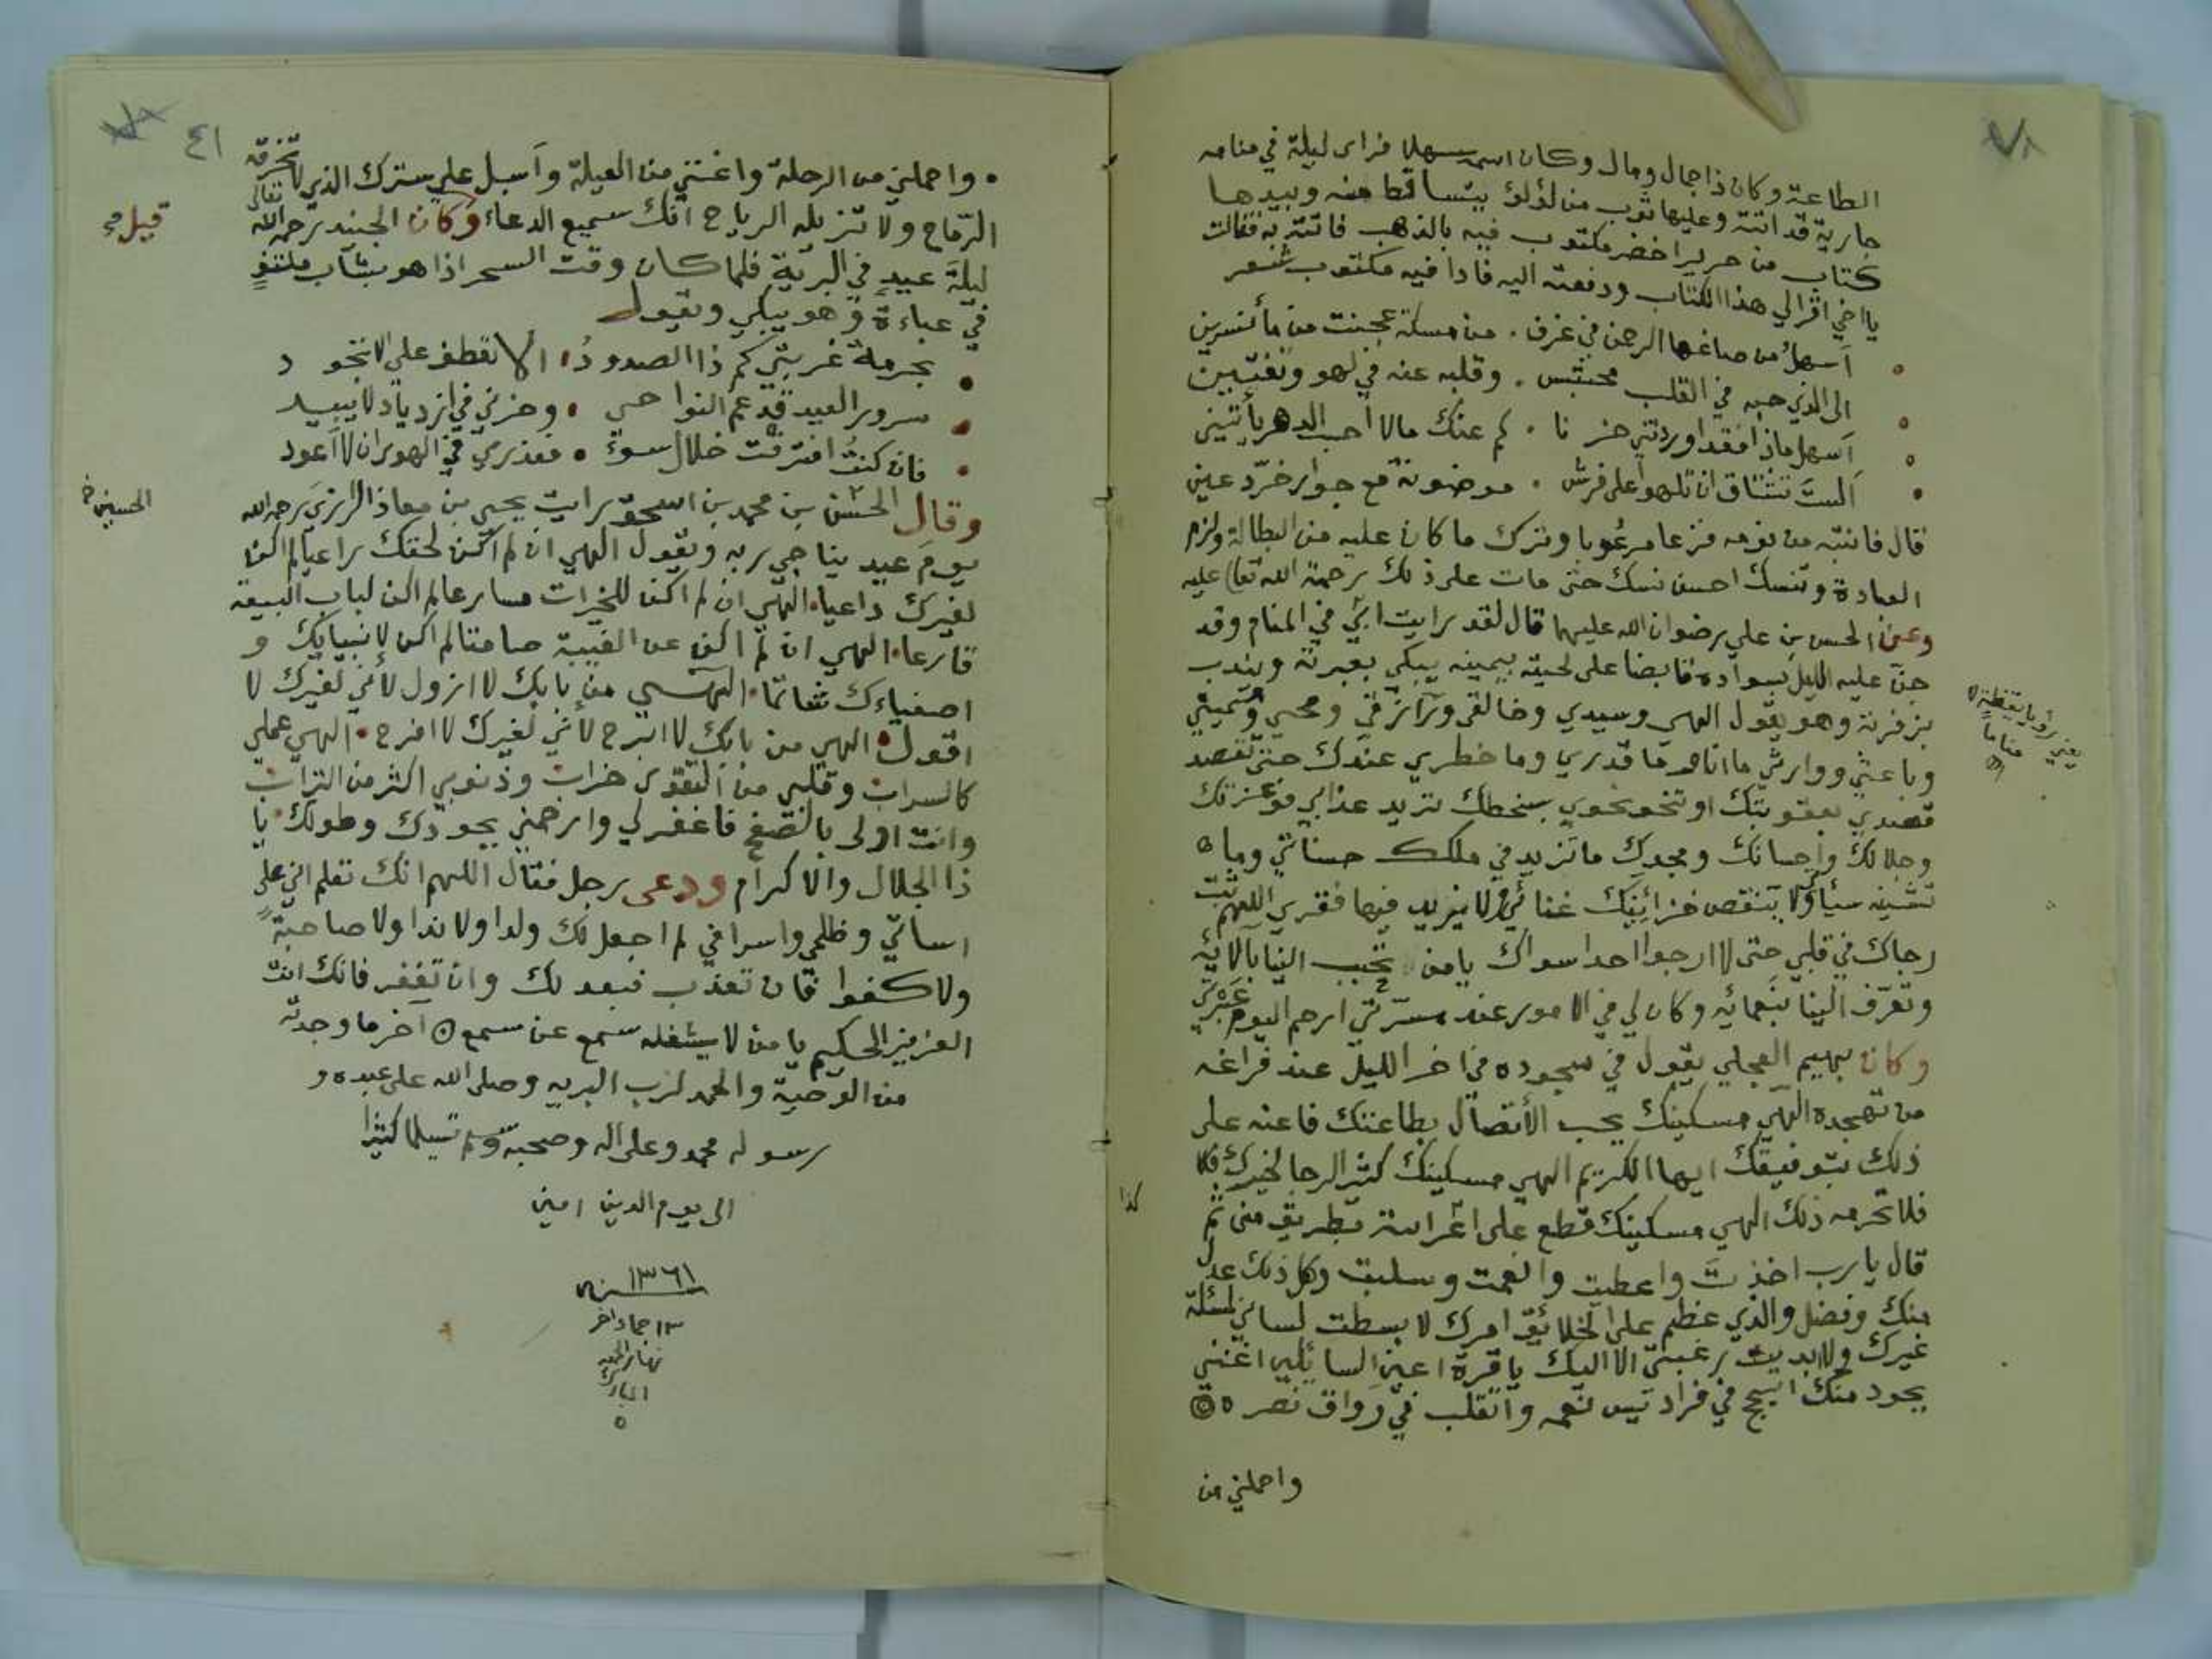 الطاعة وكان ذا جمال ومال وكان اسمه سهلا فراى ليلة في منامه
جارية قد اتته وعليها ثوب من لؤلؤ يتساقط منه وبيدها
كتاب من حرير اخضر مكتوب فيه بالذهب فاتته به فقالت
يا اخي اقرا لي هذا الكتاب ودفعته اليه فاذا فيه مكتوب شعر
أسهل من صاغها الرحمن في غرف . من مسكة عجنت من ماء نسرين
الى الذي حبه في القلب محتبس . وقلبه عنه في لهو وتفتين
أسهل ماذا فقد اوردتني حزنا . لم عنك مالا احب الدهر يأتيني
ألست تشتاق ان تلهو على فرش . موضونة مع جوار خرّد عين
قال فانتبه من نومه فزعا مرعوبا وترك ما كان عليه من البطالة ولزم
العبادة وتنسك احسن نسك حتى مات على ذلك رحمة الله تعالى عليه
وعن الحسن بن علي رضوان الله عليهما قال لقد رايت ابي في المنام وقد
جن عليه الليل بسواده قابضا على لحيته بيمينه يبكي بعبرته ويندب
بزفرته وهو يقول الهي وسيدي وخالقي ورازقي ومحيي ومميتي
وباعثي ووارثي ما انا وما قدري وما خطري عندك حتى تقصد
قصدي بعقوبتك او تنحو نحوي بسخطك تريد عذابي فوعزتك
وجلالك واحسانك ومجدك ما تزيد في ملكك حسناتي وما
تشينه سيأتي ولا ينقص خزاينك غنائي ولا يزيد فيها فقري اللهم ثبت
رجاك في قلبي حتى لا ارجوا احدا سواك يا من تحبب الينا بآلائه
وتعرف الينا بنعمائه وكان لي في الامور عند مسرتي ارحم اليوم عبرتي
وكان بهيم العجلي يقول في سجوده في اخر الليل عند فراغه
من تهجده الهي مسكينك يحب الاتصال بطاعتك فاعنه على
ذلك بتوفيقك ايها الكريم الهي مسكينك كثير الرجا لخيرك فلا
فلا تحرمه ذلك الهي مسكينك قطع على اثر استه بطريق منى ثم
قال يا رب اخذت واعطيت وانعمت وسلبت وكل ذلك عدل
منك وفضل والذي عظم على الخلائق امرك لا بسطت لساني لمسئلة
غيرك ولا ابديت رغبتي الا اليك يا قرة اعين السائلين اغنني
بجود منك اسبح في فراديس نعمه واتقلب في رواق نصره
واحملني من
يعني رؤيا يقظة لا
مناما
كذا
٤١
واحملني من الرحلة واغنني من العيلة وأسبل علي سترك الذي لا تخرقه
الرماح ولا تزيله الرياح انك سميع الدعاء وكان الجنيد رحمه الله تعالى
ليلة عيد في البرية فلما كان وقت السحر اذا هو بشاب ملتف
في عباءة وهو يبكي ويقول
بحرمة غربتي كم ذا الصدود . الا تعطف علي الا تجود
سرور العيد قد عم النواحي . وحزني في ازدياد لا يبيد
فان كنت اقترفت خلال سوء . فعذري في الهوى ان لا اعود
وقال الحسن بن محمد بن اسحق رايت يحيى بن معاذ الرازي رحمه الله
يوم عيد يناجي ربه ويقول الهي ان لم اكن لحقك راعيا لم اكن
لغيرك داعيا . الهي ان لم اكن للخيرات مسارعا لم اكن لباب البيعة
قارعا . الهي ان لم اكن عن الغيبة صامتا لم اكن لانبيايك و
اصفياءك شاتما . الهي من بابك لا ازول لأني لغيرك لا
اقول . الهي من بابك لا ابرح لأنني لغيرك لا افرح . الهي عملي
كالسراب وقلبي من التقوى خراب وذنوبي اكثر من التراب
وانت اولى بالصفح فاغفر لي وارحمني بجودك وطولك يا
ذا الجلال والاكرام ودعى رجل فقال اللهم انك تعلم اني على
اساتي وظلمي واسرافي لم اجعل لك ولدا ولا ندا ولا صاحبة
ولا كفوا فان تعذب فبعدلك وان تغفر فانك انت
العزيز الحكيم يا من لا يشغله سمع عن سمع اخر ما وجدته
من الوصية والحمد لرب البريه وصلى الله على عبده و
رسوله محمد وعلى اله وصحبه وسلم تسليما كثيرا
الى يوم الدين امين
١٣٦١ سنة
١٣ جماد اخر
نهار الجمعه
المبارك
قيل
الحسين خ